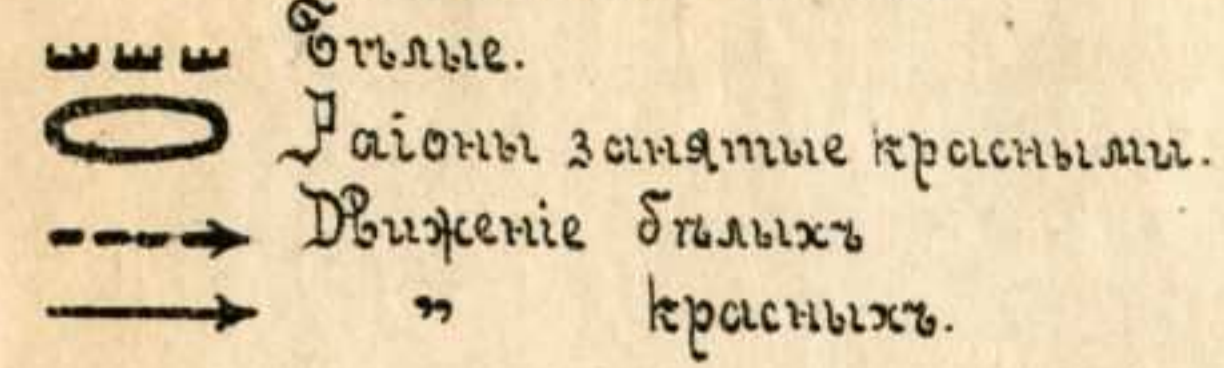 Бѣлые.
Раіоны занятые красными.
Движеніе бѣлыхъ
„ красныхъ.